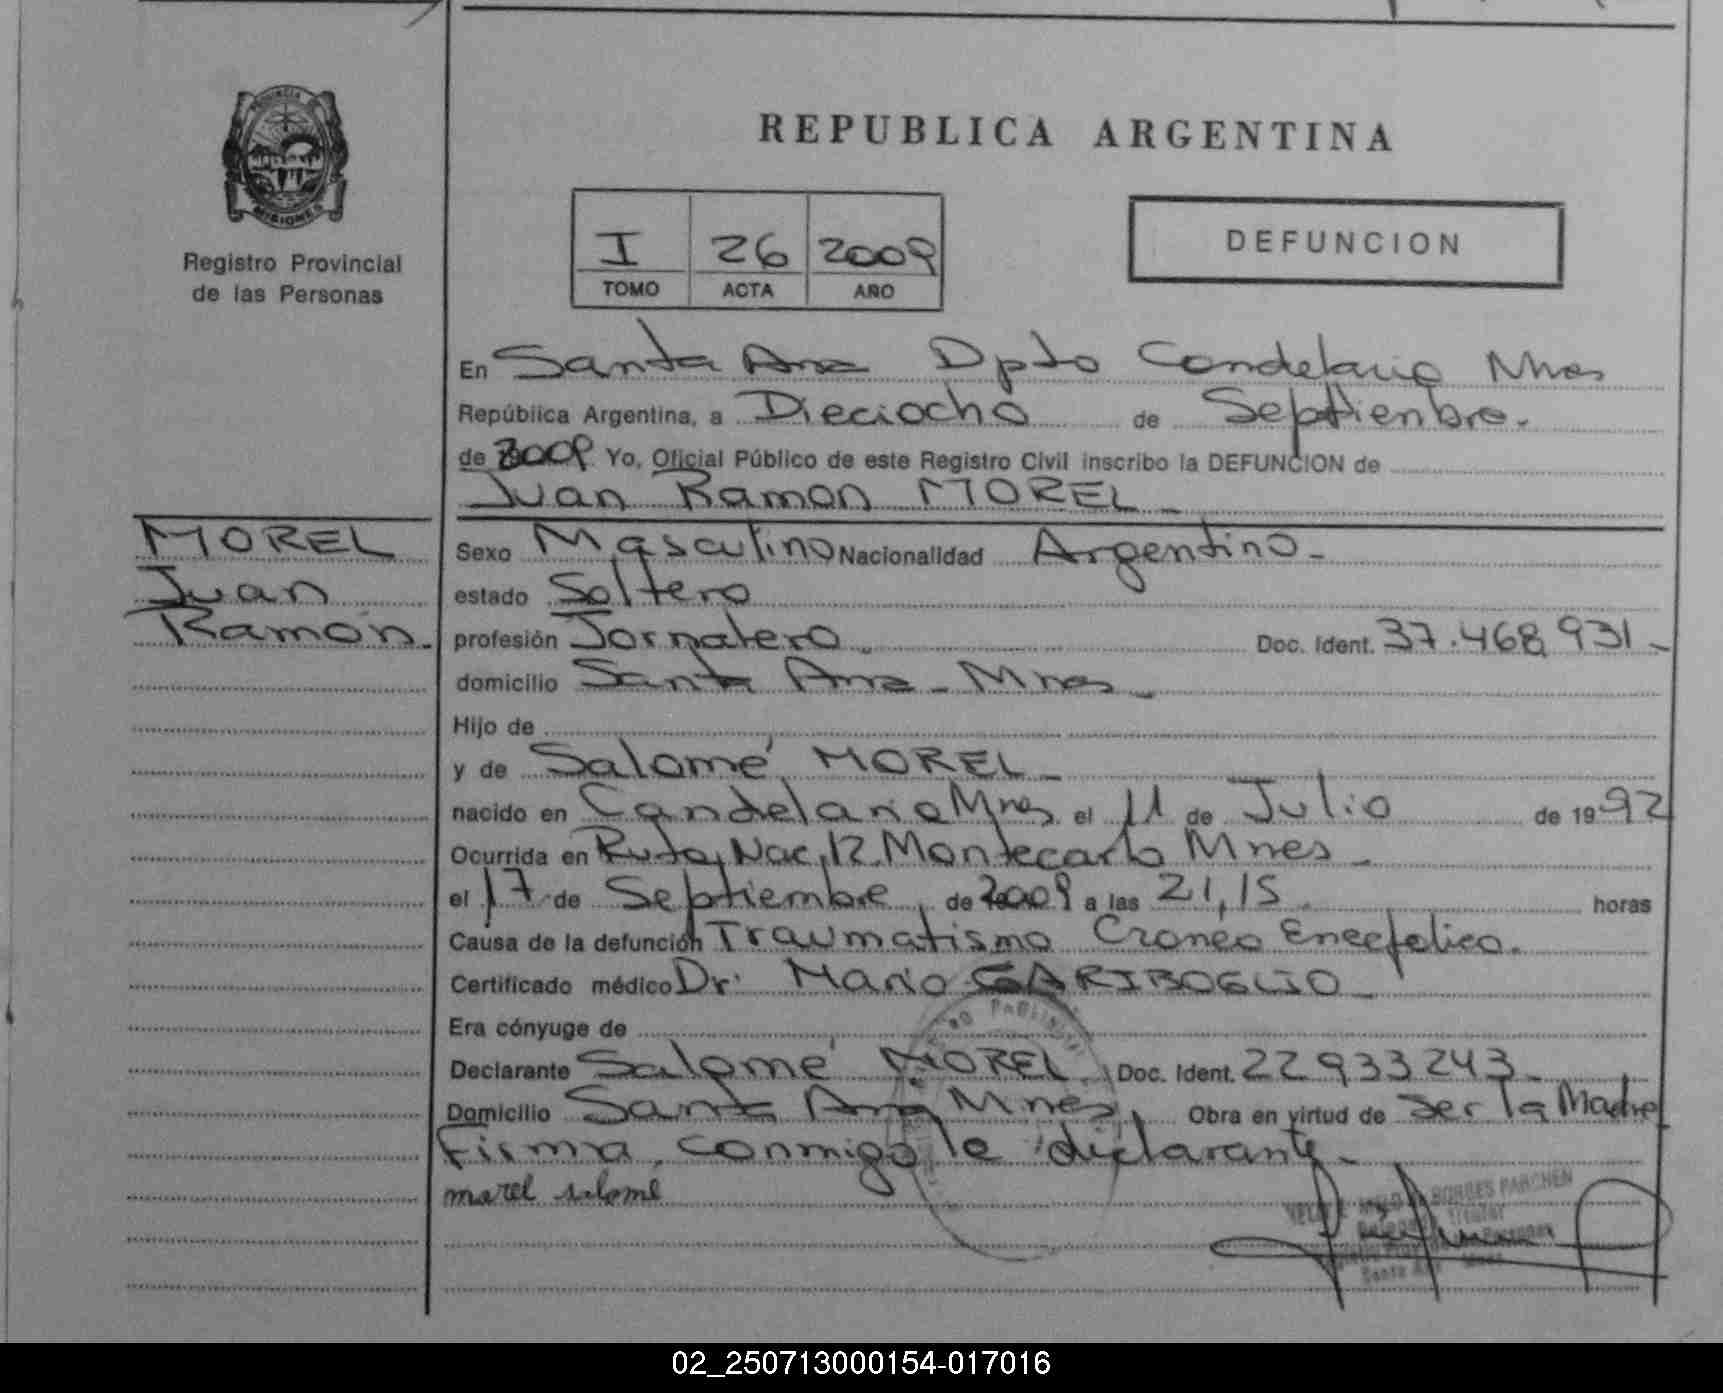 REPUBLICA ARGENTINA
PROVINCIA DE
MISIONES
Registro Provincial
de las Personas
I 26 2009
TOMO ACTA AÑO
DEFUNCION
En Santa Ana Dpto Candelaria Mnes
República Argentina, a Dieciocho de Septienbre.
de 2009 Yo, Oficial Público de este Registro Civil inscribo la DEFUNCION de
Juan Ramon MOREL
MOREL
Juan
Ramón.
Sexo Masculino Nacionalidad Argentino.
estado Soltero
profesión Jornalero. Doc. Ident. 37.468,931.
domicilio Santa Ana - Mnes.
Hijo de
y de Salomé MOREL
nacido en Candelaria Mnes. el 11 de Julio de 1992
Ocurrida en Ruta Nac, 12 Montecarlo Mnes
el 17 de Septiembre de 2009 a las 21,15 horas
Causa de la defunción Traumatismo Craneo Encefalico.
Certificado médico Dr. Mario GARIBOGLIO
Era cónyuge de
Declarante Salomé MOREL. Doc. Ident. 22933243
Domicilio Santa Ana Mnes, Obra en virtud de ser la Madre
Firma conmigo la declarante.
morel salome
BORGES PARCHEN
Santa Ana
02_250713000154-017016